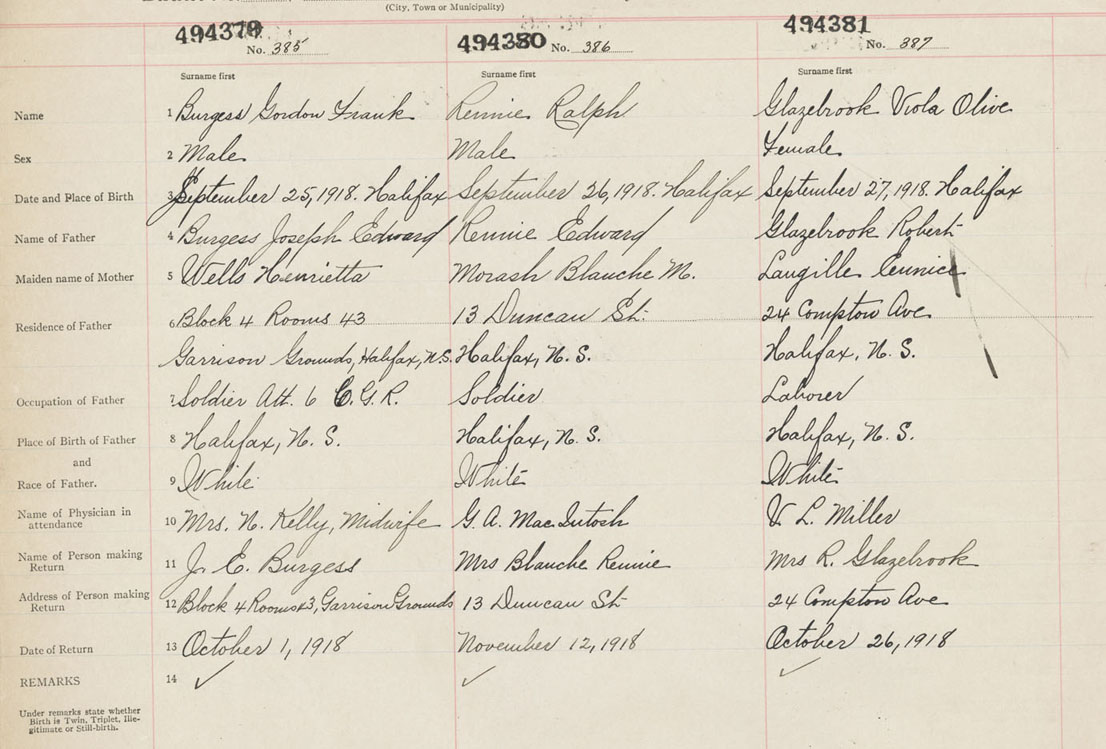 (City, Town or Municipality)
494379 494380 494381
No. 385 No. 386 No. 387
Surname first Surname first Surname first
Name 1 Burgess Gordon Frank Rennie Ralph Glazebrook Viola Olive
Sex 2 Male Male Female
Date and Place of Birth 3 September 25, 1918. Halifax September 26, 1918. Halifax September 27, 1918. Halifax
Name of Father 4 Burgess Joseph Edward Rennie Edward Glazebrook Robert
Maiden name of Mother 5 Wells Henrietta Morash Blanche M. Langille Eunice
Residence of Father 6 Block 4 Rooms 43 13 Duncan St. 24 Compton Ave.
Garrison Grounds, Halifax, N.S. Halifax, N. S. Halifax, N. S.
Occupation of Father 7 Soldier Att. 6 C.G.R. Soldier Laborer
Place of Birth of Father 8 Halifax, N. S. Halifax, N. S. Halifax, N. S.
and
Race of Father. 9 White White White
Name of Physician in attendance 10 Mrs. N. Kelly, Midwife G. A. MacIntosh V. L. Miller
Name of Person making Return 11 J. E. Burgess Mrs Blanche Rennie Mrs R. Glazebrook
Address of Person making Return 12 Block 4 Rooms 43, Garrison Grounds 13 Duncan St 24 Compton Ave
Date of Return 13 October 1, 1918 November 12, 1918 October 26, 1918
REMARKS 14 ✓ ✓ ✓
Under remarks state whether
Birth is Twin, Triplet, Ille-
gitimate or Still-birth.